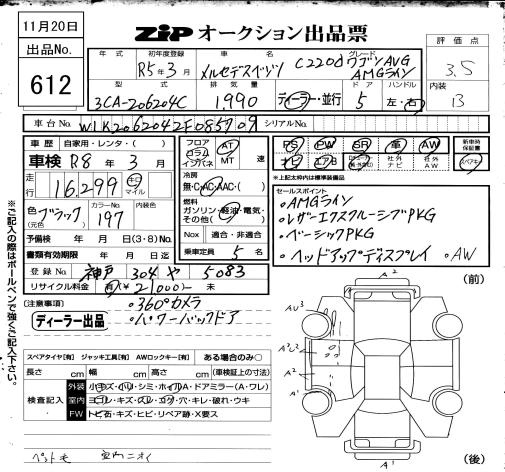 11月20日
出品No.
612
ZiP オークション出品票
年式
初年度登録
R5年3月
車名
メルセデスベンツ
グレード
C220d ワゴン AVG
AMGライン
評価点
3.5
型式
3CA-206204C
排気量
1,990
ディーラー・並行
ドア
5
ハンドル
左・右
内装
B
車台No.
W1K2062042F085709
シリアルNo.
車歴
自家用・レンタ・( )
車検 R8年3月
走行
16,299
キロ
マイル
色
(元色)
ブラック
カラーNo.
197
内装色
予備検 年 月 日(3・8)No.
書類有効期限 年 月 日迄
登録No. 神戸 304 や 5083
リサイクル料金 有(¥21000-) 未
フロア
コラム
インパネ
AT
MT
速
冷房
無・C・AC・AAC・( )
燃料
ガソリン・軽油・電気・
その他( )
Nox 適合・非適合
乗車定員 5 名
PS PW SR 革 AW
ナビ エアB
社外
ナビ
社外
AW
新車時
保証書
スペアキー
※上記太わく内は標準装備品
セールスポイント
・AMGライン
・レザーエクスクルーシブPKG
・ベーシックPKG
・ヘッドアップディスプレイ ・AW
(注意事項)
・360°カメラ
ディーラー出品
・パワーバックドア
スペアタイヤ[有] ジャッキ工具[有] AWロックキー[有] ある場合のみ○
長さ cm 幅 cm 高さ cm (車検証上の寸法)
検査記入
外装 小キズ・ハリ・シミ・ホイルA・ドアミラー(A・ワレ)
室内 ヨゴレ・キズ・スレ・コゲ・穴・キレ・破れ・ウキ
FW トビ石・キズ・ヒビ・リペア跡・X要ス
ペット毛 室内ニオイ
※ご記入の際はボールペンで強くご記入下さい。
(前)
A2
AU3
A2
A1
A1
(後)